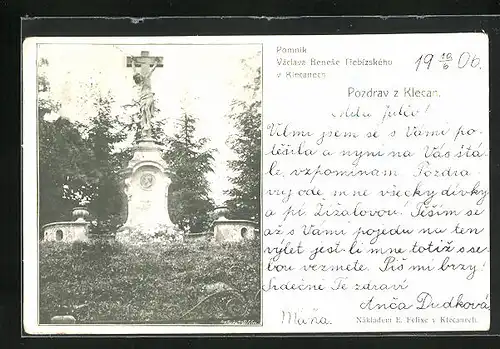 Pomník
Václava Beneše Třebízského
v Klecanech.
19 18/6 06.
Pozdrav z Klecan.
Milá Julčo!
Velmi jsem se s Vámi po-
těšila a nyní na Vás stá-
le vzpomínám. Pozdra-
vuj ode mne všecky dívky
a pí. Žížalovou. Těším se
až s Vámi pojedu na ten
výlet jest-li mne totiž s se-
bou vezmete. Piš mi brzy!
Srdečně Tě zdraví
Anča Dudková
Máňa.
Nákladem E. Felixe v Klecanech.